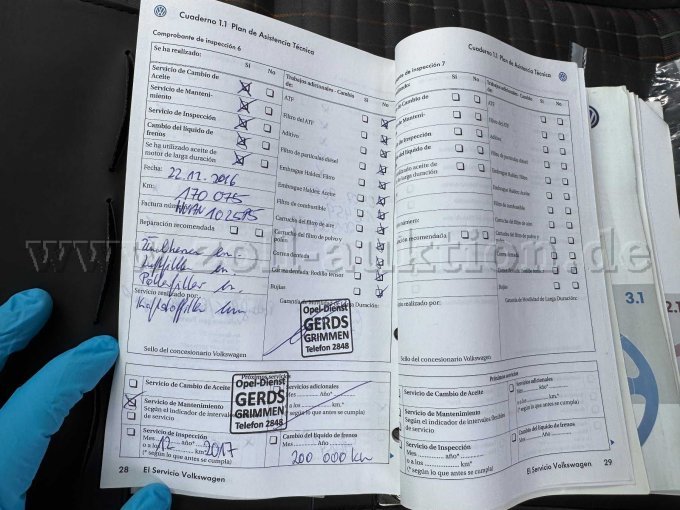 Cuaderno 1.1 Plan de Asistencia Técnica
Comprobante de inspección 6
Se ha realizado: Sí No
Servicio de Cambio de Aceite
Servicio de Manteni-
miento
Servicio de Inspección
Cambio del líquido de
frenos
Se ha utilizado aceite de
motor de larga duración
Fecha: 22.12.2016
Km: 170 075
Factura número: 102515
Reparación recomendada
Servicio realizado por:
Sello del concesionario Volkswagen
Trabajos adicionales - Cambio de: Sí No
ATF
Filtro del ATF
Aditivo
Filtro de partículas diésel
Embrague Haldex: Filtro
Embrague Haldex: Aceite
Filtro de combustible
Cartucho del filtro de aire
Cartucho del filtro de polvo y
polen
Correa dentada
Correa dentada: Rodillo tensor
Bujías
Garantía de Movilidad de Larga Duración:
Opel-Dienst
GERDS
GRIMMEN
Telefon 2848
Próximos servicios
Servicio de Cambio de Aceite
Servicio de Mantenimiento
Según el indicador de intervalos
de servicio
Servicio de Inspección
Mes 12 Año* 2017
o a los km*
(* según lo que antes se cumpla)
Opel-Dienst
GERDS
GRIMMEN
Telefon 2848
Servicios adicionales
Mes Año*
o a los km*
(* según lo que antes se cumpla)
Cambio del líquido de frenos
200 000 km
28 El Servicio Volkswagen
Cuaderno 1.1 Plan de Asistencia Técnica
de inspección 7
Sí No
Cambio de
Manteni-
Inspección
líquido de
aceite de
duración
número:
recomendada
realizado por:
Sello del concesionario Volkswagen
Trabajos adicionales - Cambio
de: Sí No
ATF
Filtro del ATF
Aditivo
Filtro de partículas diésel
Embrague Haldex: Filtro
Embrague Haldex: Aceite
Filtro de combustible
Cartucho del filtro de aire
Cartucho del filtro de polvo y
polen
Correa dentada
Correa dentada: Rodillo tensor
Bujías
Garantía de Movilidad de Larga Duración:
Próximos servicios
Servicio de Cambio de Aceite
Servicio de Mantenimiento
Según el indicador de intervalos
de servicio
Servicio de Inspección
Mes Año*
o a los km*
(* según lo que antes se cumpla)
Servicios adicionales
Mes Año*
o a los km*
(* según lo que antes se cumpla)
Cambio del líquido de frenos
El Servicio Volkswagen 29
3.1
2.1
www.zoll-auktion.de